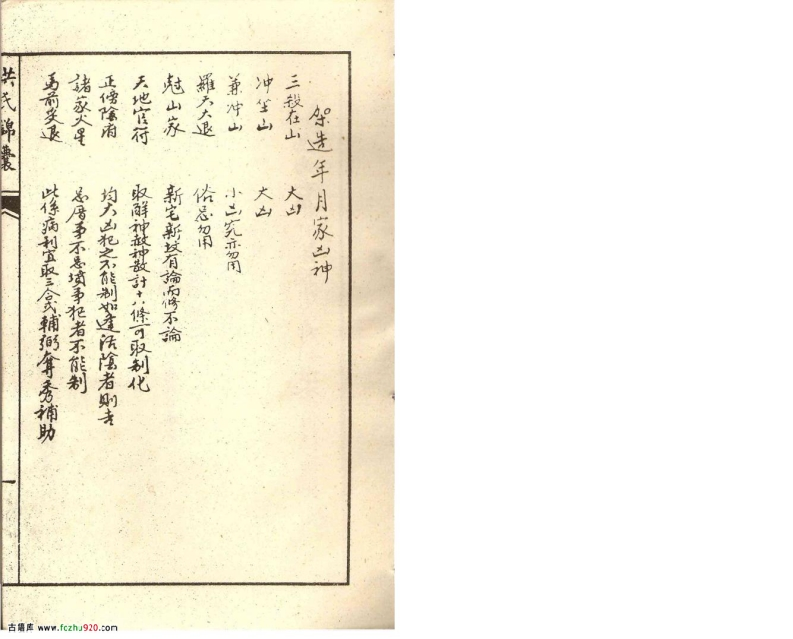 架造年月家凶神
三殺在山 大凶
冲坐山 大凶
兼冲山 小凶究亦勿用
羅天大退 俗忌勿用
尅山家 新宅新坟有論而修不論
天地官符 取解神赦神数計十八條可取制化
正傍陰府 均大凶犯之不能制如逢活陰者則吉
諸家火星 忌厝事不忌墳事犯者不能制
馬前炎退 此係病利宜取三合式輔弼奪秀補助
洪氏錦囊
一
古籍库 www.fczhu920.com